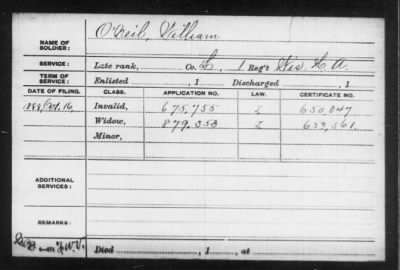 NAME OF SOLDIER: O'Neil, William
SERVICE: Late rank, Co. L, 1 Reg't Wis. H. A.
TERM OF SERVICE: Enlisted , 1 Discharged , 1
DATE OF FILING. CLASS. APPLICATION NO. LAW. CERTIFICATE NO.
1888, Oct. 16, Invalid, 675,755 650,047
Widow, 879,353 653,561
Minor,
ADDITIONAL SERVICES:
REMARKS:
Died , 1 , at